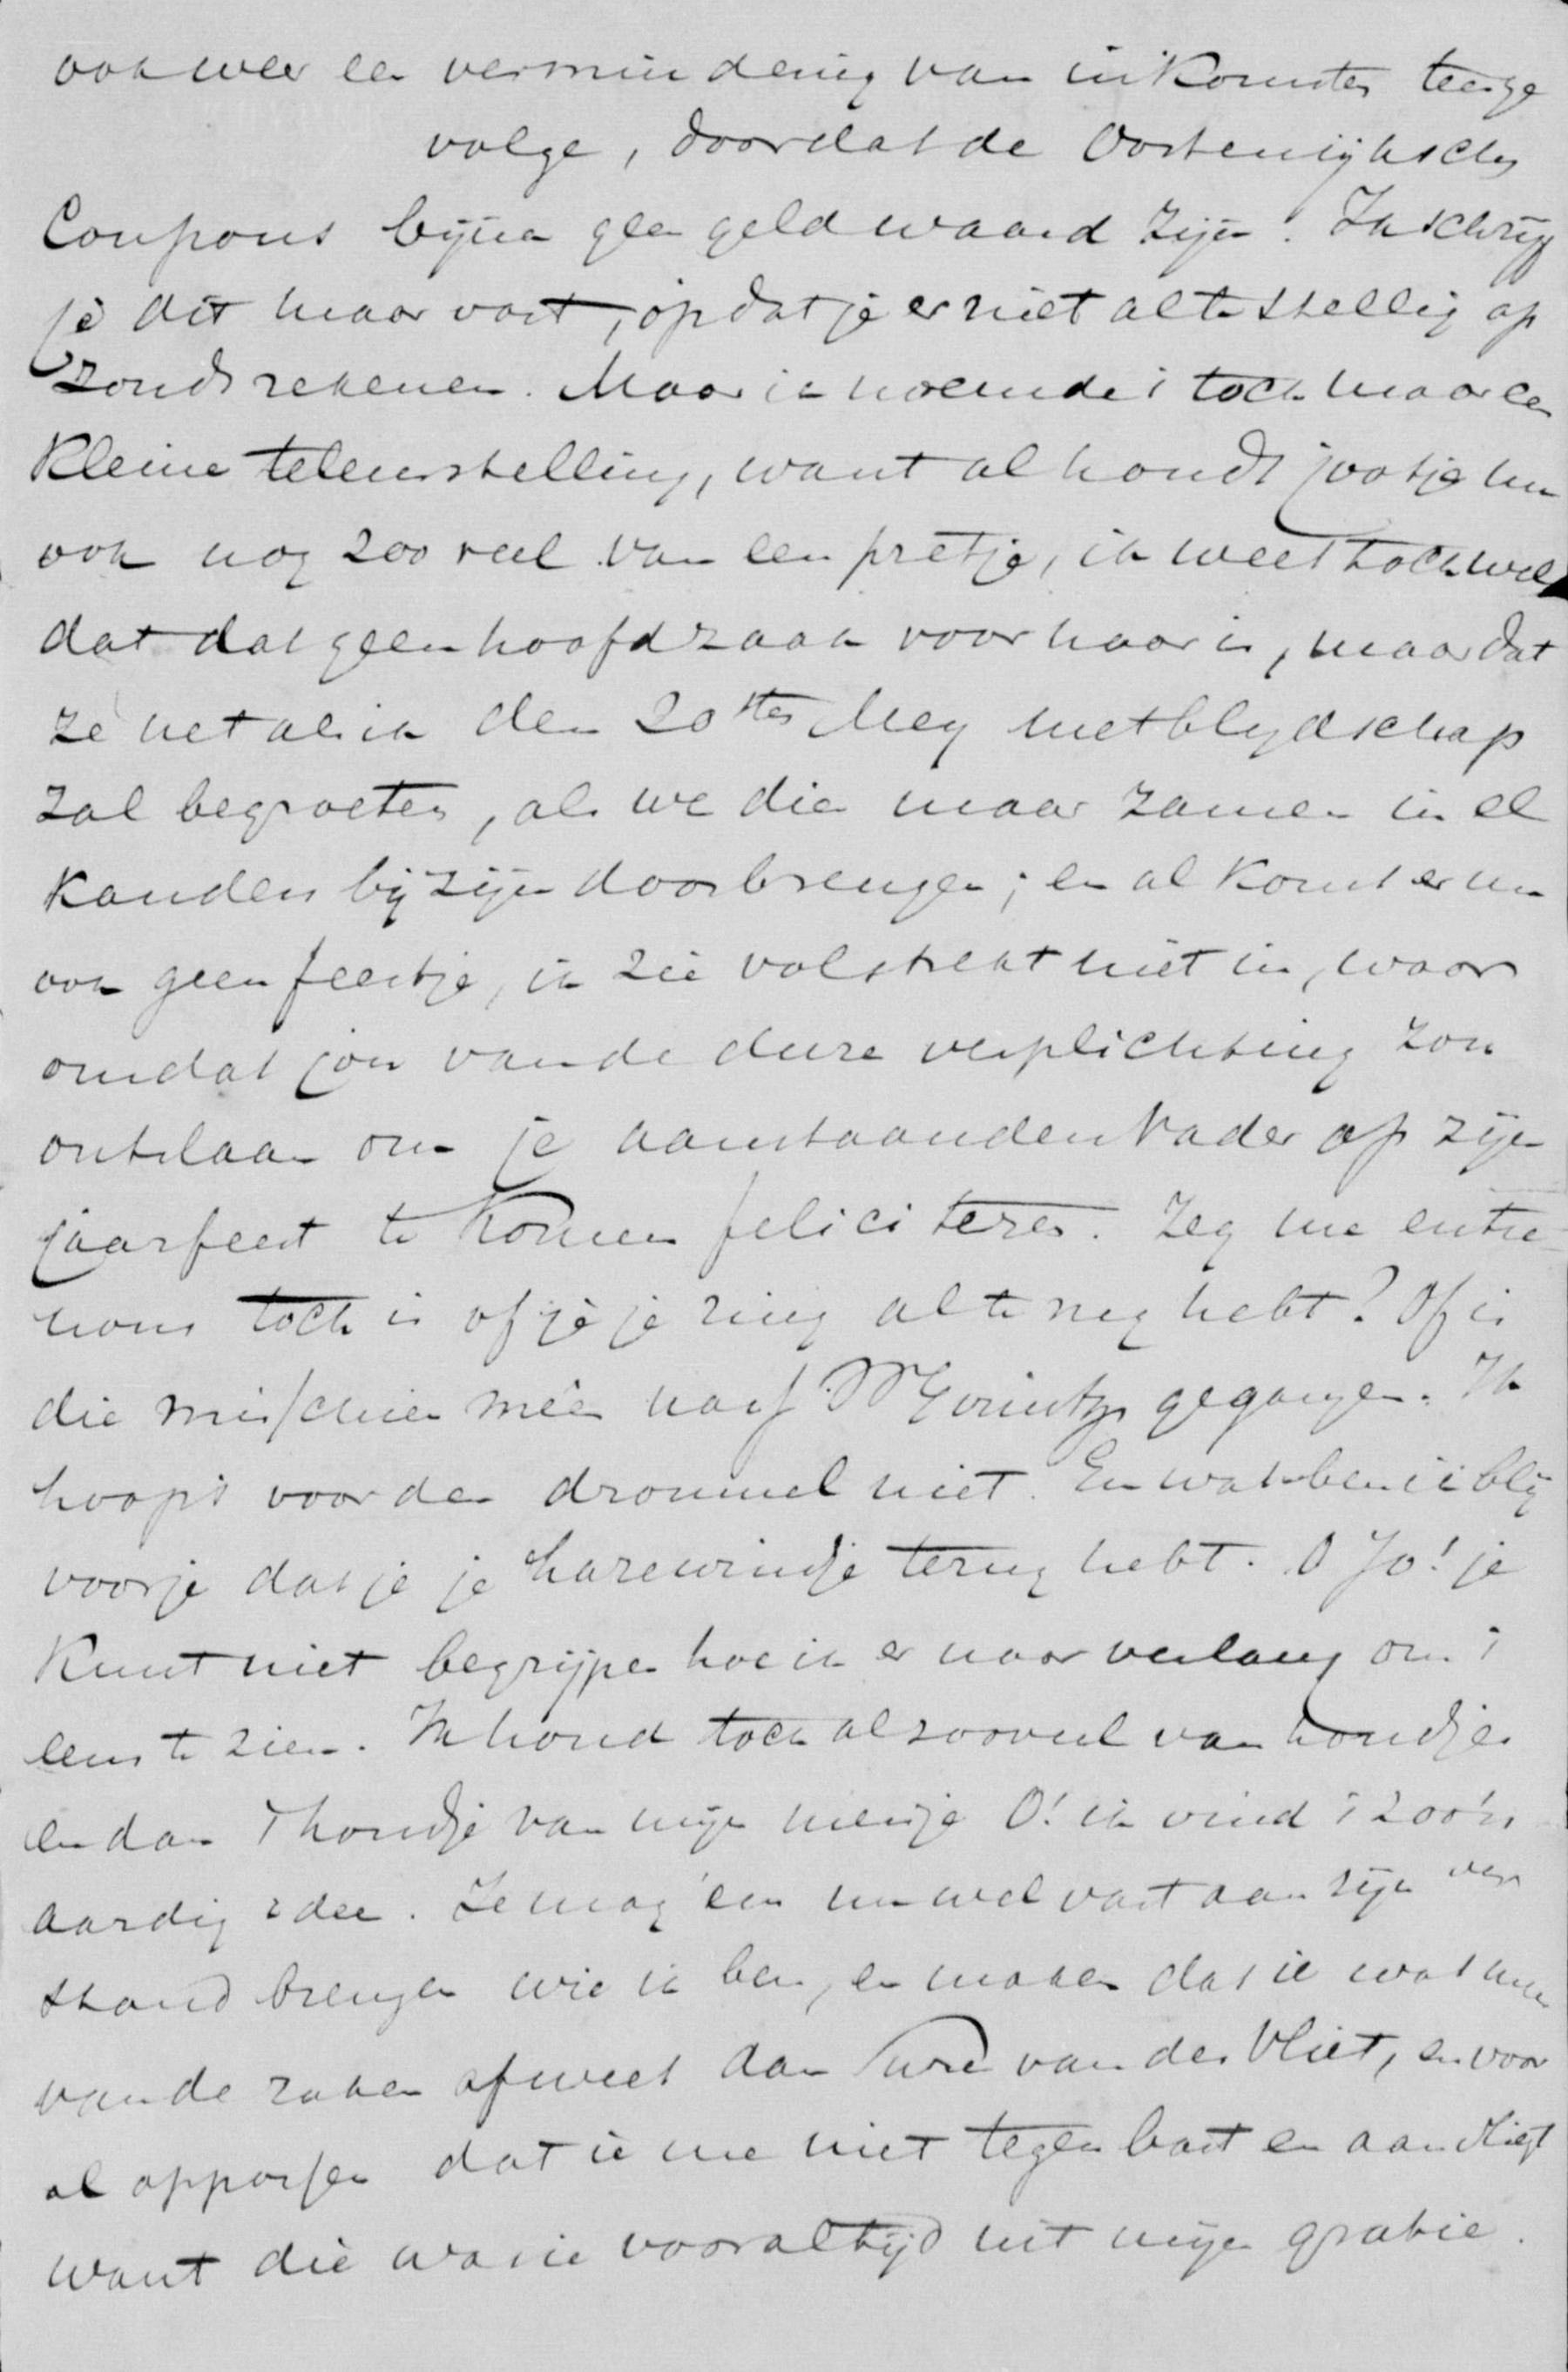 ook weer een vermindering van inkomsten teenge
volge, doordat de Oostenrijksche
Coupons bijna geen geld waard zijn! Ik schrijf
je dit maar vast, opdat je er niet al te stellig op
zoudt rekenen. Maar ik noemde 't toch maar een
kleine teleurstelling, want al houdt Jootje nu
ook nog zooveel van een pretje, ik weet toch wel
dat dat geen hoofdzaak voor haar is, maar dat
ze net als ik den 20sten Mey met blydschap
zal begroeten, als we dien maar zamen in el
kanders bijzijn doorbrengen; en al komt er nu
ook geen feestje, ik zie volstrekt niet in, waar
omdat jou van de dure verplichting zou
ontslaan om je aanstaanden Vader op zijn
jaarfeest te komen feliciteren. Zeg me entre
nous toch is of je je ring al terug hebt? Of is
die misschien meê naar gegangen. Ik
hoop 't voor den drommel niet. En wat ben ik blij
voor je dat je je harewindje terug hebt. O Jo! je
kunt niet begrijpen hoe ik er naar verlang om 't
eens te zien. Ik houd toch al zooveel van hondjes
en dan 't hondje van mijn meisje O! ik vind 't zoo'n
aardig idee. Ze mag 'em nu wel vast aan zijn ver
stand brengen wie ik ben, en maken dat ie wat meer
van de zaken afweet dan van der Vliet, en voor
al oppassen dat ie me niet tegen bast en aanvliegt
want die was ie voor altijd uit mijn gratie.